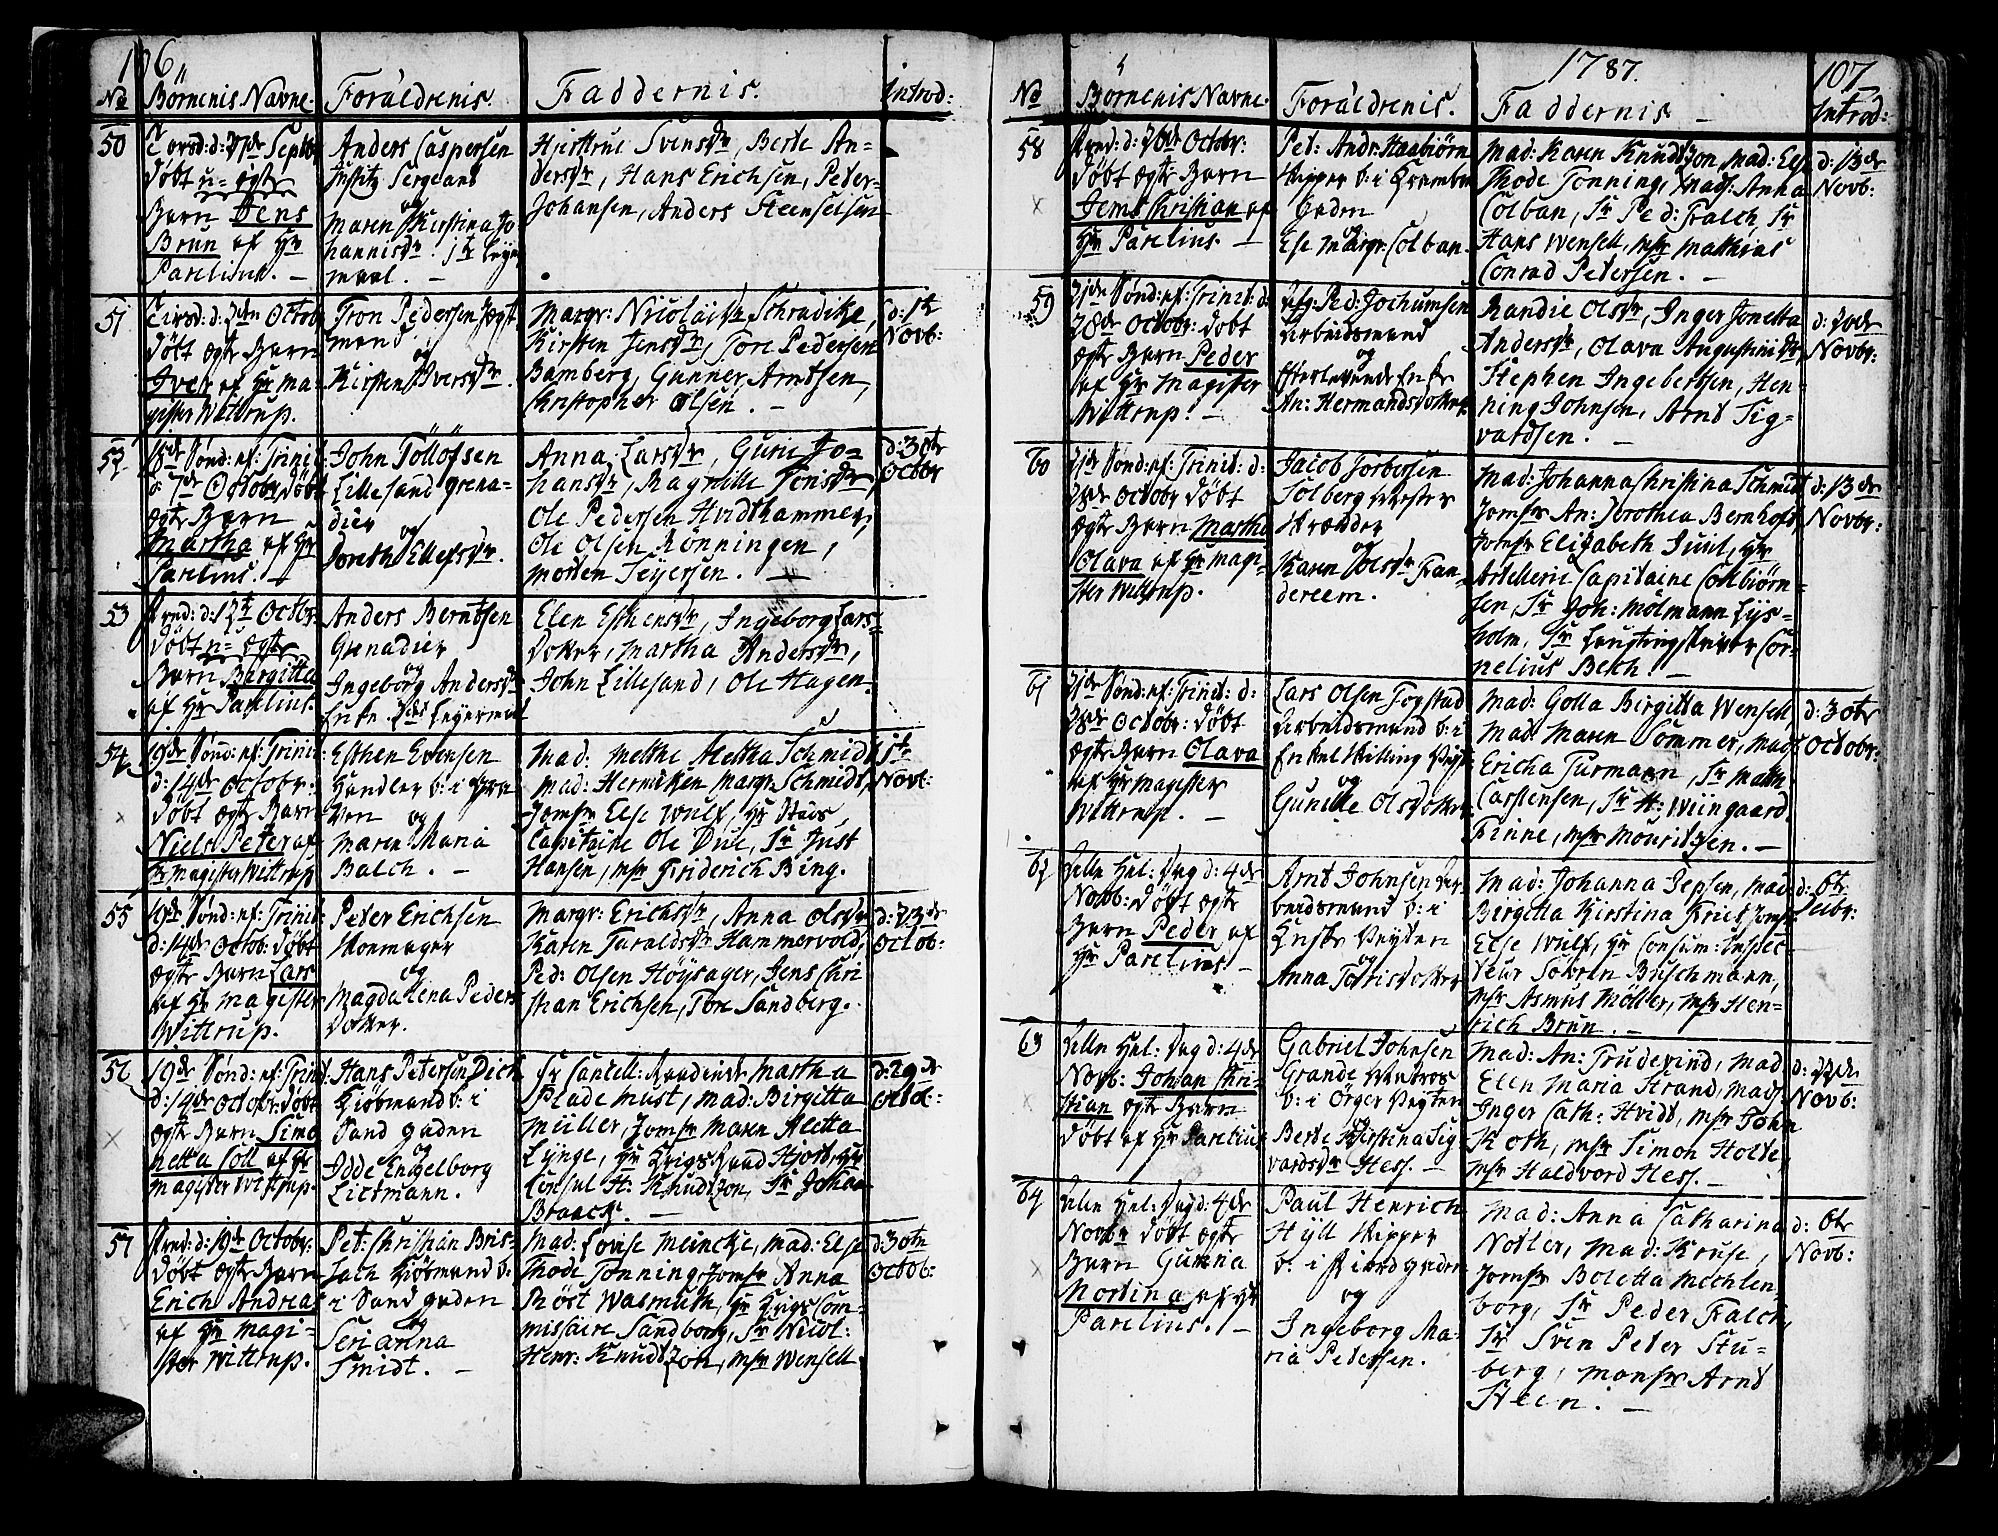 106
No Börnenis Navne. Foräldrenis. Faddernis. Introd:
50
döbt u-ægte
Barn Jens
Brun af Hr
Parelius. -
Anders Caspersen
Sergeant
og
Maren Kirstina Jo
hannisdr. 1te Leyer
maal. -
Hjerttrue Svensdr, Berte An-
dersdr, Hans Erichsen, Peter
Johansen, Anders Steenselsen
51
Tirsd: d: 2den Octob
döbt ægte Barn
Iver af Hr Ma-
gister Wittrup.
Tron Pedersen
mand
og
Kirsten Iversdr.
Margr: Nicolaisdr Schradike,
Kirsten Jensdr, Tore Pedersen
Bamberg, Gunner Arntsen,
Christopher Olsen. -
d: 1te
Novb:
52
18de Sönd: ef: Trinit:
d 7de Octobr döbt
ægte Barn
Martha af Hr
Parelius. -
John Töllofsen
Lillesand grena-
dier
og
Dorethe Ellefsdr.
Anna Larsdr, Guru Jo-
hansdr, Magnille Tonisdr,
Ole Pedersen Hvidthammer,
Ole Olsen Rönningen,
Morten Seyersen. -
d: 30te
Octobr
53
Fred: d: 12te Octobr:
döbt u-ægte
Barn Birgitta
af Hr Parelius.
Anders Berntsen
Grenadier
og
Ingeborg Andersdr
Enke. 2det Leyermal
Elen Esthensdr, Ingeborg Lars-
dotter, Martha Andersdr,
John Lillesand, Ole Hagen.
54
19de Sönd: ef: Trinit:
d: 14de Octobr:
döbt ægte Barn
Niels Peter af
Hr Magister Wittrup
Esthen Evensen
Handler b: i
og
Maren Maria
Balch. -
Mad: Mette Aletha Schmidt
Mad: Hermiken Margr: Schmidt,
Jomfr Else Wulf, Hr Stads
Capitaine Ole Due, Sr Just
Hansen, Msr Friderich Bing.
15te
Novb:
55
19de Sönd: ef: Trinit:
d: 14de Octob: döbt
ægte Barn Lars
af Hr Magister
Wittrup.
Peter Erichsen
Skomager
og
Magdalena Peders
dotter.
Margr: Erichsdr, Anna Olsdr
Karen Taraldsdr Hammervold,
Ped: Olsen Höysager, Jens Chri
stian Erichsen, Tore Sandberg.
d: 23de
Octob:
56
19de Sönd: ef: Trinit:
d: 14de Octobr: döbt
ægte Barn Simo
netta Coll af Hr
Magister Wittrup.
Hans Petersen Dich
Kiöbmand b: i
Sand gaden
og
Idde Engelborg
Lietmann.
Fr Cancell: Raadinde Martha
Plade Must, Mad: Birgitta
Müller, Jomfr Maren Aletta
Lynge, Hr Krigs Raad Hjort, Hr
Consul H: Knudtzon, Sr Johan
Braack. -
d: 29de
Octob:
57
Fred: d: 19de Octobr:
döbt ægte Barn
Erich Andreas
af Hr Magi-
ster Wittrup.
Pet: Christian Bris-
sach Kiöbmand b:
i Sand gaden
og
Serianna
Smidt. -
Mad: Lovise Meincke, Mad: Else
Thode Tonning, Jomfr Anna
Röst Wasmuth, Hr Krigs Com-
missaire Sandborg, Sr Nicol:
Henr: Knudtzon, Msr Wensell
d: 30te
Octob:
1787. 107
No Börnenis Navne. Foräldrenis. Faddernis - Introd:
58
Fred: d: 26de Octobr:
döbt ægte Barn
Jens Christian af
Hr Parelius. -
Pet: Andr: Haabiörn
Skipper b: i
gaden
og
Else Margr: Colban.
Mad: Karen Knudtzon, Mad: Else
Thode Tonning, Mad: Anna
Colban, Sr Ped: Falch, Sr
Hans Wensell, Msr Matthias
Conrad Petersen. -
d: 13de
Novb:
59
21de Sönd: ef: Trinit: d:
28de Octobr: döbt
ægte Barn Peder
af Hr Magister
Wittrup. -
Afg: Ped: Jochumsen
Arbeidsmand
og
Efterlevende Enke
An: Hermandsdotter
Randie Olsdr, Inger Jonetta
Andersdr, Olava Augustinisdr,
Stephen Ingebertsen, Hen-
ning Johnsen, Arnt Sig-
vardsen. -
d: 20de
Novbr:
60
21de Sönd: ef: Trinit: d:
28de Octobr döbt
ægte Barn Martha
Olava af Hr Magi-
ster Wittrup.
Jacob Torbersen
Solberg Mester
Skrædder
og
Karen Olsdr Fan-
dereem.
Mad: Johanna Christina Schmidt
Jomfr An: Dorothea Bernhoft,
Jomfr Elizabeth Juul, Hr
Artellerie Capitaine Colbiörn-
sen, Sr Joh: Mölmann Lys-
holm, Sr Cor-
nelius Bech. -
d: 13de
Novbr:
61
21de Sönd: ef: Trinit: d:
28de Octobr: döbt
ægte Barn Olava
af Hr Magister
Wittrup. -
Lars Olsen Fogstad
Arbeidsmand b: i
Enkel Killing Veyt
og
Gunille Olsdotter
Mad: Golla Birgitta Wensell
Mad: Maren Sommer, Mad:
Ericha Turmann, Sr Math:
Carstensen, Sr H: Wiingaard
Finne, Msr Mouritzen. -
d: 30te
Octobr:
62
Alle Hel: Dag d: 4de
Novb: döbt ægte
Barn Peder af
Hr Parelius -
Arnt Johnsen Ar-
beidsmand b: i
Veyten
og
Anna Torrisdotter
Mad: Johanna Jepsen, Mad
Birgitta Kirstina Kriet, Jomfr
Else Wulf, Hr Consum: Inspec-
teur Sören Buschmann,
Msr Asmus Möller, Msr Hen-
rich Brun. -
d: 6te
Debr:
63
Alle Hel: Dag d: 4de
Novb: Johan Chri-
stian ægte Barn
döbt af Hr Parelius
Gabriel Johnsen
Grande Matros
b: i Örger Veyten
og
Berte Kirstina Sig
vardsdr Hess. -
Mad: An: Trudevind, Mad
Elen Maria Strand, Mad:
Inger Cath: Hvidt, Msr John
Koth, Msr Simon Holte,
Msr Haldvord Hess. -
d: 22de
Novb:
64
Alle Hel: Dag d: 4de
Novbr döbt ægte
Barn Gunna
Martina af Hr
Parelius. -
Paul Henrich
Hyll Skipper
b: i Fiordgaden
og
Ingeborg Ma-
ria Petersen.
Mad: Anna Catharina
Notler, Mad: Kruse,
Jomfr Boletta Mechlen
borg, Sr Peder Falch,
Sr Sven Peter Stu-
berg, Monsr Arnt
Steen. -
d: 6te
Novb: